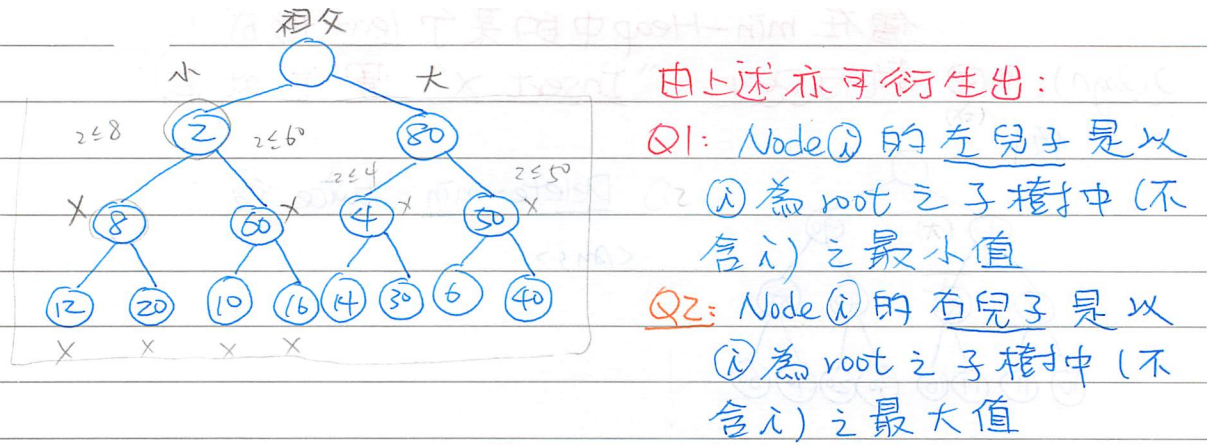 祖父
小
大
2≤8
2
2≤60
80
2≤4
2≤50
X 8 60 X 4 X 50 X
12 20 10 16 14 30 6 40
X X X X
由上述亦可衍生出:
Q1: Node i 的左兒子是以
i 為 root 之子樹中 (不
含 i) 之最小值
Q2: Node i 的右兒子是以
i 為 root 之子樹中 (不
含 i) 之最大值